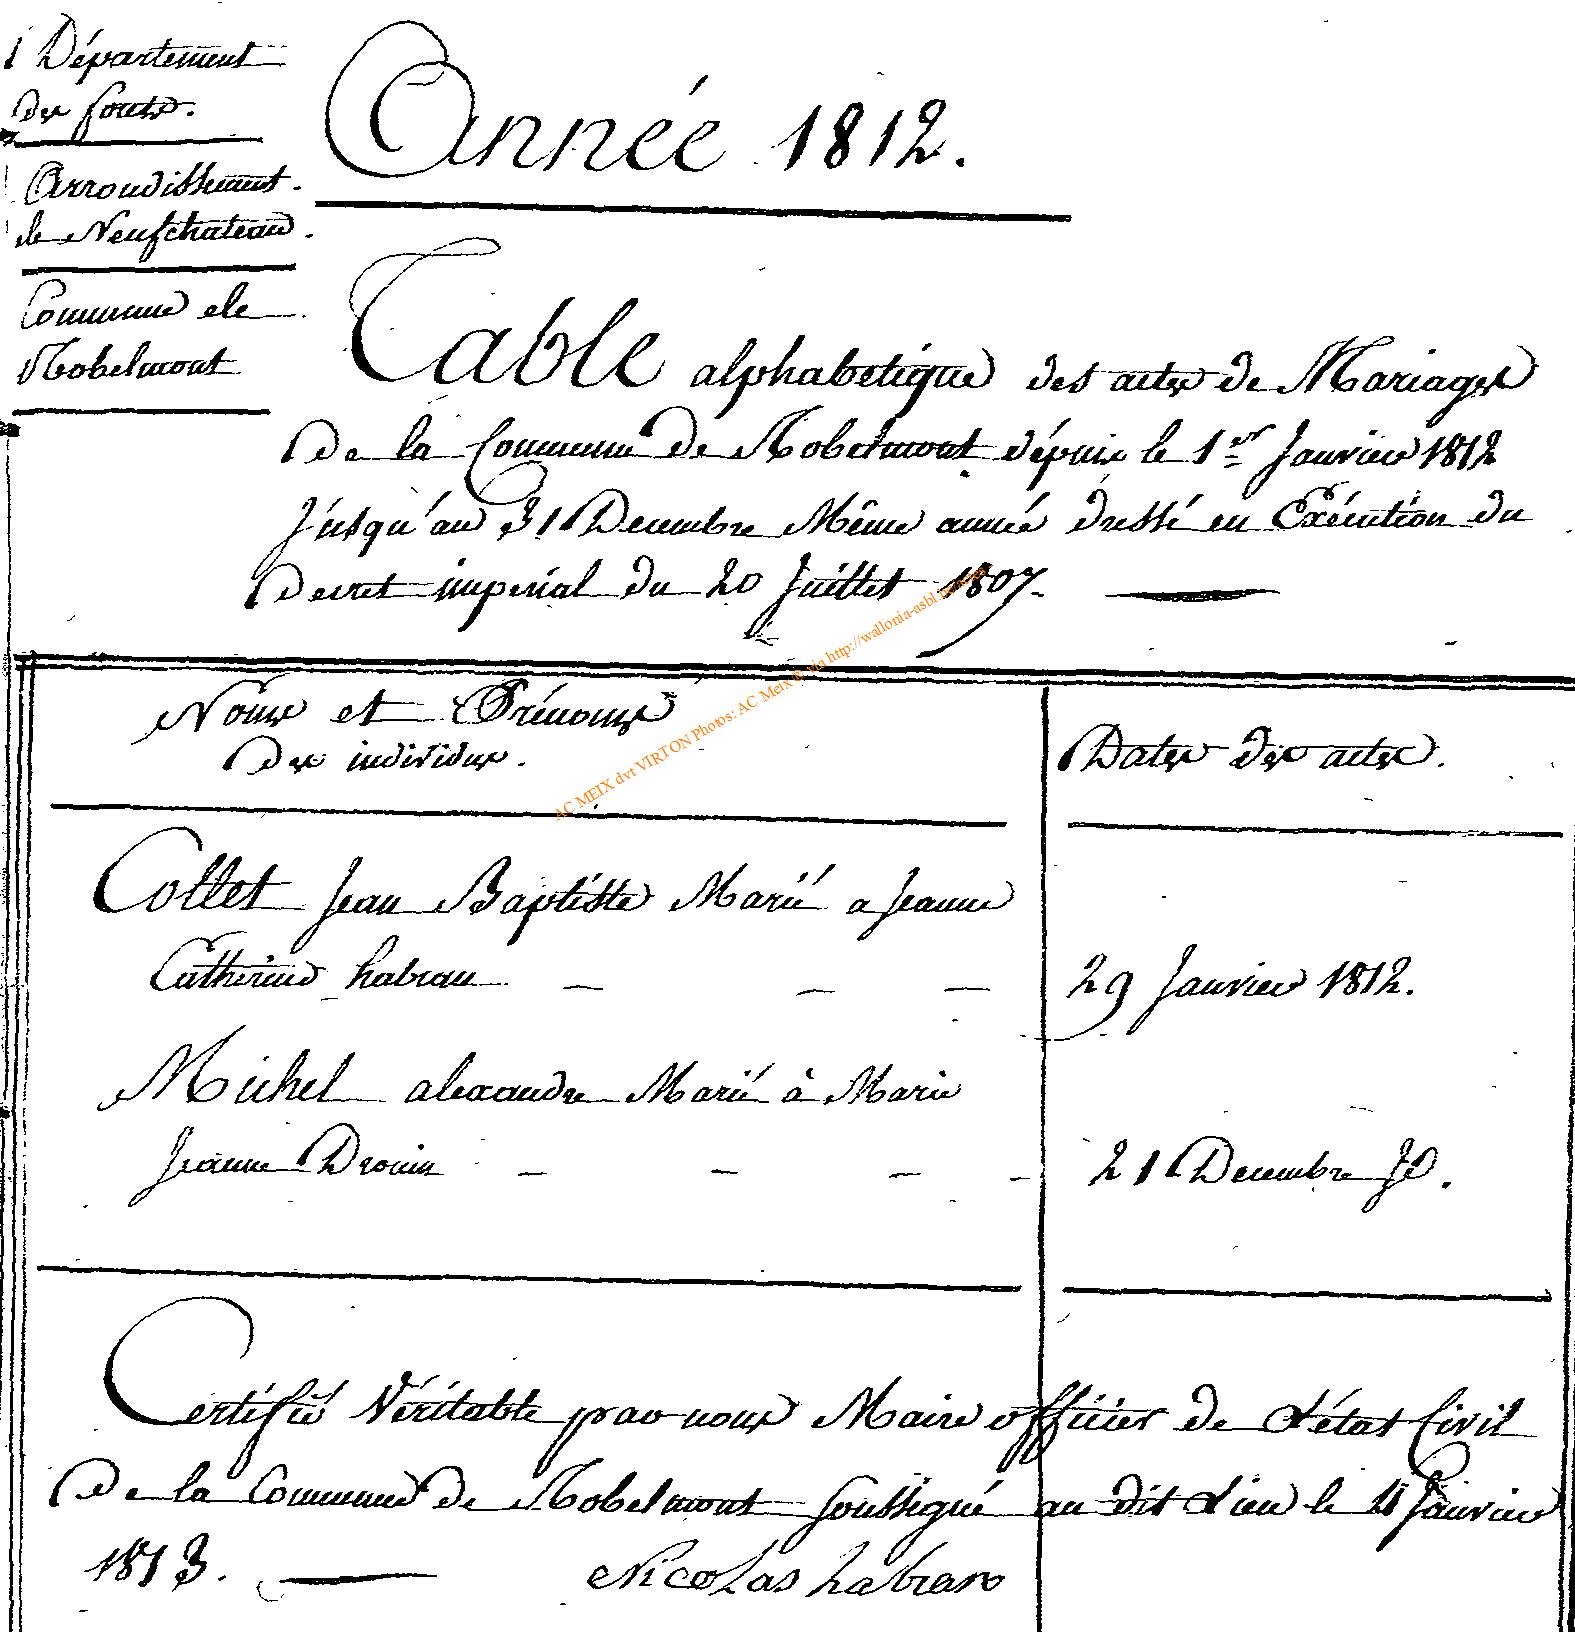 Département
des forets.
Arrondissement.
de Neufchateau.
Commune de
Robelmont
Année 1812.
Table alphabetique des actes de Mariages
De la Commune de Robelmont dépuis le 1er Janvier 1812
Jusqu'au 31 Decembre Même année dressé en Exécution du
Decret imperial du 20 Juillet 1807.
Noms et Prénoms
Des individus.
Dates des actes.
Collet Jean Baptiste Marié a Jeanne
Catherine habran
29 Janvier 1812.
Michel alexandre Marié à Marie
Jeanne Drouin
21 Decembre Jd.
Certifié Véritable par nous Maire officier de L'état Civil
De la Commune de Robelmont soussigné au dit Lieu le Janvier
1813.
Nicolas habran
AC MEIX dvt VIRTON Photos: AC Meix © via http://wallonia-asbl